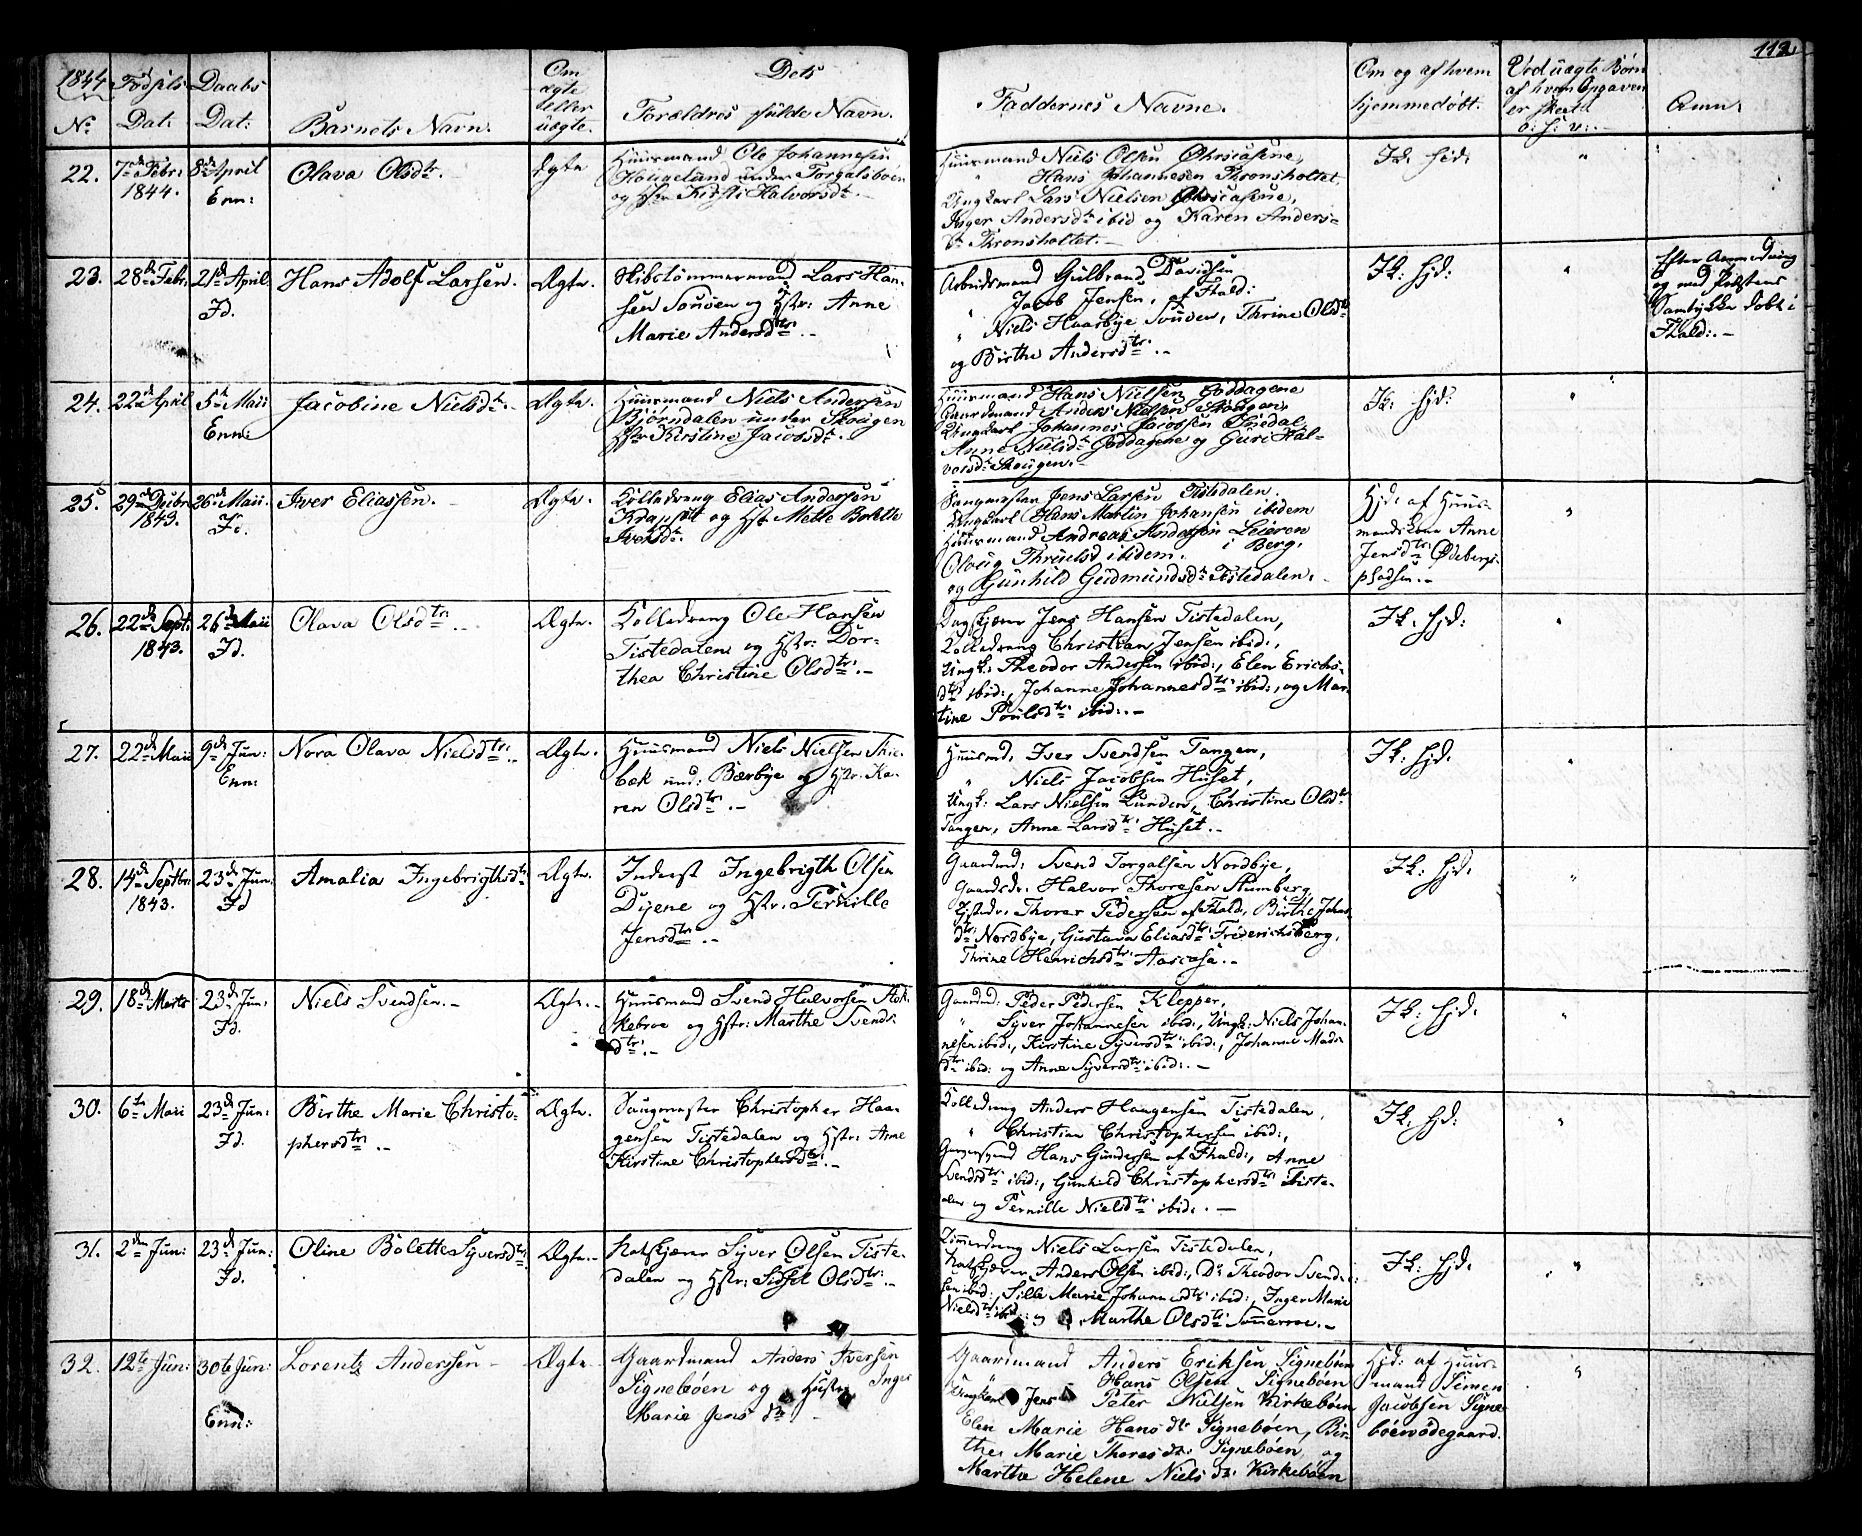 112
1844
No
Fødsels
Dat:
Daabs
Dat:
Barnets Navn.
Om
ægte
eller
uægte.
Dets
Forældres fulde Navn.
Faddernes Navne.
Om og af hvem
hjemmedøbt.
Ved uægte Børn
af hvem Opgaven
er skeed
o: s: v:
Anm:
22.
7de Febr:
1844.
8de April
Enn:
Olava Olsdtr.
Ægte
Huusmand Ole Johannesen
Hougelund under Torgalsboen
og Hstr Kirsti Halvorsdtr.
Huusmand Niels Olsen
" Hans Johannesen Thronsholtet,
Ungkarl Lars Nielsen
Inger Andersdtr ibid og Karen Anders-
dtr Thronsholtet.
Ik: Hjd:
"
23.
28de Febr:
21de April
Fd.
Hans Adolf Larsen.
Ægte.
Skibstømmermand Lars Han-
sen Souven og Hstr: Anne
Marie Andersdtr:
Arbeidsmand Gulbrand Davidsen
" Jacob Jensen, af Fhald:
" Niels Haarbye Souven, Thrine Olsdtr
og Birthe Andersdtr:
Ik: Hjd:
"
Efter Anmodning
og med Præstens
Samtykke døbt i
Fhald:
24.
22de April
5te Maii
Enn:
Jacobine Nielsdtr.
Ægte.
Huusmand Niels Andersen
Bjørndalen under Skougen
Hstr Kirstine Jacobsdtr.
Huusmand Hans Nielsen Goddagene
Gaardmand Anders Nielsen Skougen,
Ungkarl Johannes Jacobsen
Anne Nielsdtr Goddagene og Guri Hal-
vorsdtr Skougen.
Ik: Hjd:
"
25.
29de Decbr
1843.
26de Maii.
Fd.
Iver Eliassen.
Ægte.
Kølledreng Elias Andersen
Krapfot og Hstr Mette Bolette
Iversdtr.
Saugmester Jens Larsen Tistedalen.
Ungkarl Hans Martin Johansen ibidem
Huusmand Andreas Andersen Leieren
i Berg,
Oloug Thruelsd ibidem.
og Gunhild Gudmundsdtr Tistedalen.
Hjd: af Huus-
mandskone Anne
Jensdtr: Ødebergs-
pladsen.
"
26.
22de Sept:
1843.
26de Maii
Fd.
Olava Olsdtr
Ægte.
Kølledreng Ole Hansen
Tistedalen og Hstr: Dor-
thea Christine Olsdtr:
Dagskjærer Jens Hansen Tistedalen,
Kølledreng Christian Jensen ibid:,
Ungk: Theodor Andersen ibid:, Elen Erichs-
dtr ibid:, Johanne Johannesdtr: ibid:, og Mar-
tine Poulsdtr: ibid:.
Ik: Hjd:
"
27.
22de Maii
9de Jun:
Enn:
Nora Olava Nielsdtr:
Ægte.
Huusmand Niels Nielsen Skie-
bek und: Bærbye og Hstr: Ka-
ren Olsdtr:
Huusmd: Iver Svendsen Tangen,
" Niels Jacobsen Huset,
Ungk: Lars Nielsen Lunden, Christine Olsdtr
Tangen, Anne Larsdtr: Huset.
Ik: Hjd:
"
28.
14de Septbr:
1843.
23de Jun:
Fd
Amalia Ingebrigthsdtr
Ægte.
Inderst Ingebrigth Olsen
Dyene og Hstr: Pernille
Jensdtr:
Gaardmd: Svend Torgalsen Nordbye,
Gaardsdr: Halvor Thoresen Stumberg,
Thorer Pedersen af Fhald:, Birthe Johs-
dtr: Nordbye, Gustava Eliasdtr: Friderichsberg,
Thrine Henrichsdtr: Aascasa.
Ik: Hjd:
"
29.
18de Marts
23de Jun:
Fd.
Niels Svendsen.
Ægte.
Huusmand Svend Halvorsen Stok-
kebroe og Hstr: Marthe Svends-
dtr:
Gaardmd: Peder Pedersen Klepper,
" Syver Johannesen ibid:, Ungk: Niels Johan-
nesen ibid:, Kirstine Syversdtr: ibid:, Johanne Mads-
dtr: ibid: og Anne Syversdtr: ibid:.
Ik: Hjd:
"
30.
6te Maii
23de Jun:
Fd.
Birthe Marie Christo-
phersdtr:
Ægte.
Saugmester Christopher Haa-
gensen Tistedalen og Hstr: Anne
Kirstine Christophersdtr:
Kølledreng Anders Haagensen Tistedalen,
" Christian Christophersen ibid:,
Hans Gundersen af Fhald:, Anne
Svendsdtr: ibid:, Gunhild Christophersdtr: Tiste-
dalen og Pernille Nielsdtr: ibid:.
Ik: Hjd:
"
31.
2den Jun:
23de Jun:
Fd.
Oline Bolette Syversdtr:
Ægte.
Natskjærer Syver Olsen Tiste-
dalen og Hstr: Sidsel Olsdtr:
Niels Larsen Tistedalen,
Natskjærer Anders Olsen ibid:, Do Theodor Svend-
sen ibid:, Sille Marie Johannesdtr: ibid:, Inger Marie
Nielsdtr: ibid: og Marthe Olsdtr:
Ik: Hjd:
"
32.
12te Jun:
30te Jun:
Enn:
Lorentz Andersen
Ægte.
Gaardmand Anders Iversen
Signebøen og Hustr Inger
Marie Jensdtr
Gaardmand Anders Eriksen Signebøen
" Hans Olsen Signebøen
Ungkarl Jens Peter Nielsen Kirkebøen
Elen Marie Hansdtr Signebøen, Bir-
the Marie Thoresdtr Signebøen og
Marthe Helene Nielsdtr: Kirkebøen
Hjd: af Huus-
mand Simen
Jacobsen Signe-
bøenødegaard.
"